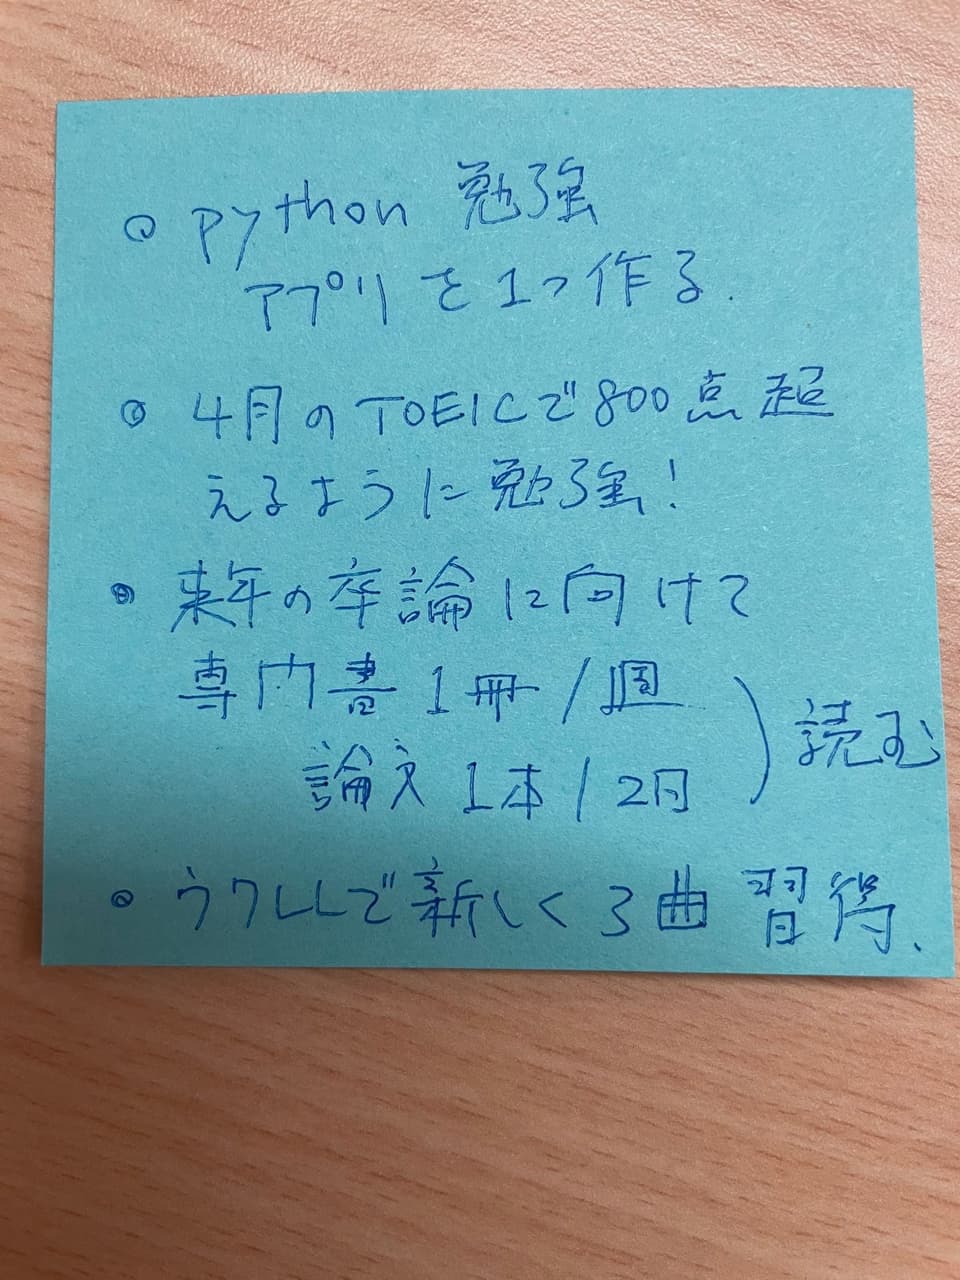 ○ python 勉強
アプリを1つ作る.
○ 4月のTOEICで800点超
えるように勉強!
○ 来年の卒論に向けて
専門書 1冊/週
論文 1本/2日
) 読む
○ ウクレレで新しく3曲 習得.